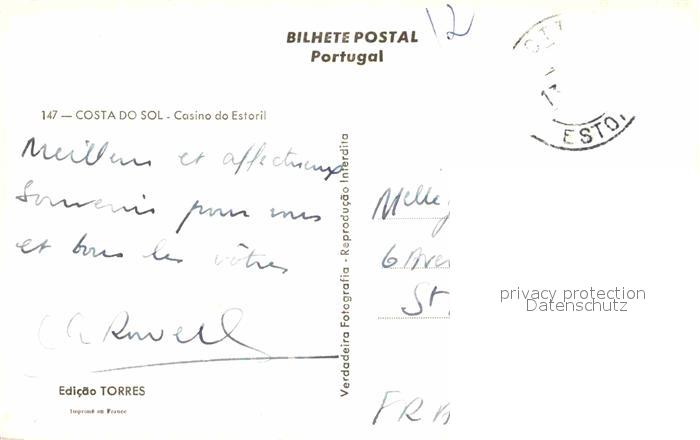 BILHETE POSTAL
Portugal
12
147 — COSTA DO SOL - Casino do Estoril
Meilleurs et affectueux
Souvenirs pour vous
et tous les vôtres
Edição TORRES
Imprimé en France
Verdadeira Fotografia - Reprodução Interdita
ESTO
13
Melle
6 Ave
St
FRA
privacy protection
Datenschutz